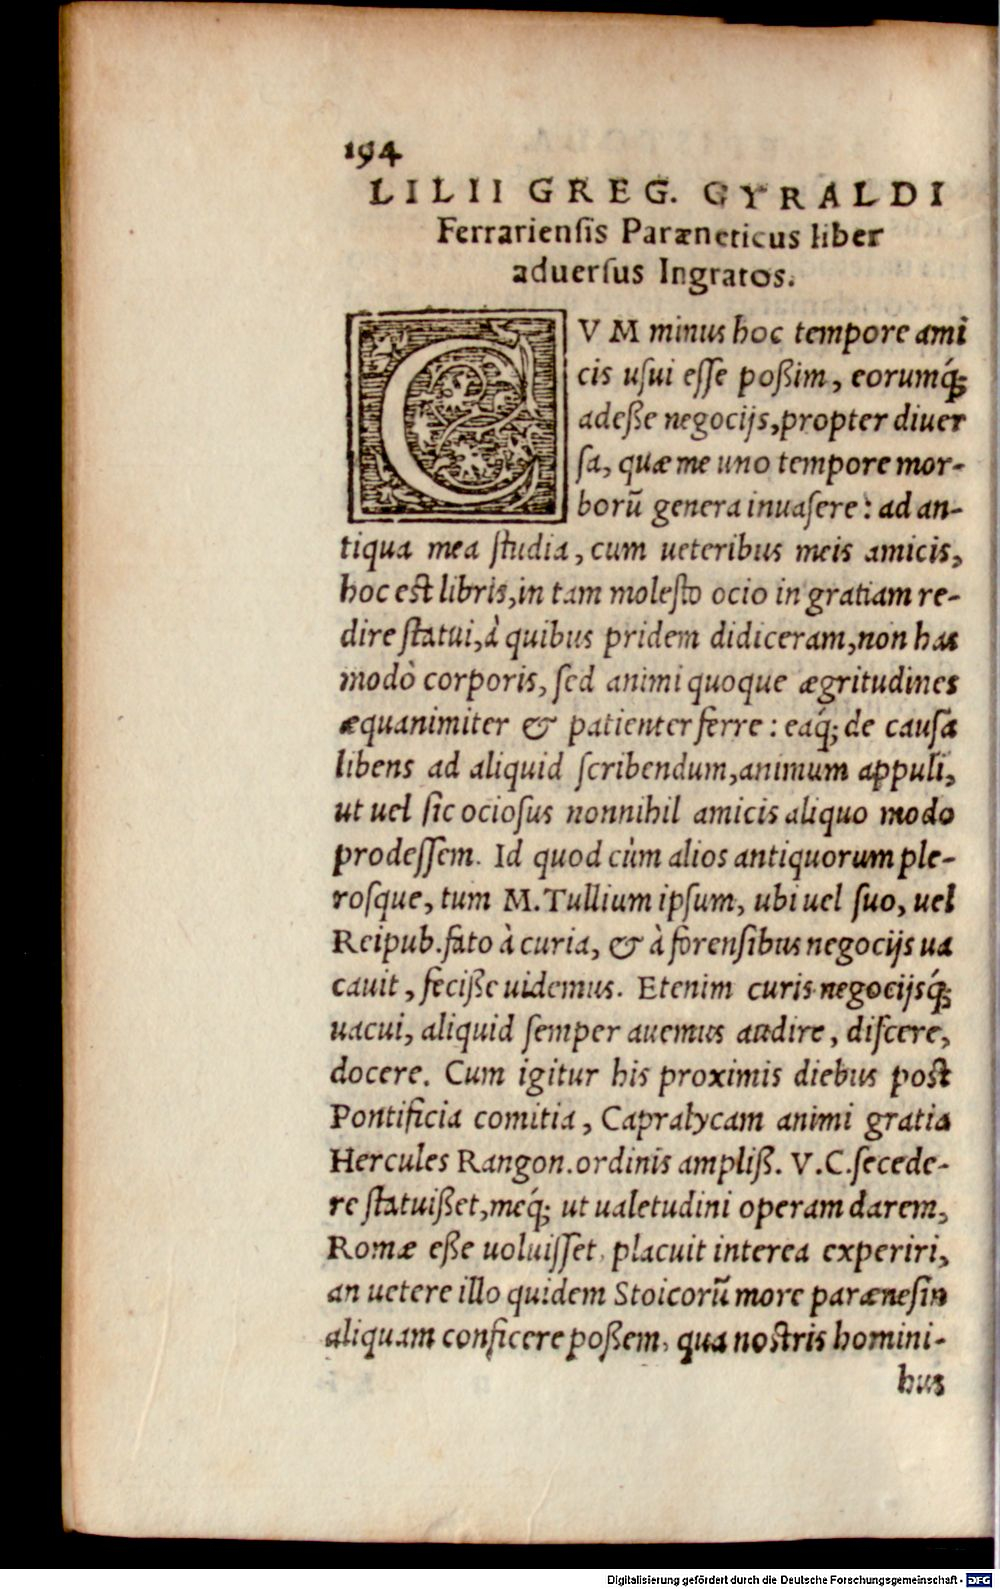 194
LILII GREG. GYRALDI
Ferrariensis Parænericus liber
aduersus Ingratos.
CVM minus hoc tempore ami
cis usui esse poßim, eorumq́;
adeße negocijs, propter diuer
sa, quæ me uno tempore mor-
borũ genera inuasere: ad an-
tiqua mea studia, cum ueteribus meis amicis,
hoc est libris, in tam molesto ocio in gratiam re-
dire statui, à quibus pridem didiceram, non has
modò corporis, sed animi quoque ægritudines
æquanimiter & patienter ferre: eaq́; de causa
libens ad aliquid scribendum, animum appuli,
ut uel sic ociosus nonnihil amicis aliquo modo
prodessem. Id quod cùm alios antiquorum ple-
rosque, tum M. Tullium ipsum, ubi uel suo, uel
Reipub. fato à curia, & à forensibus negocijs ua
cauit, feciße uidemus. Etenim curis negocijsq́;
uacui, aliquid semper auemus audire, discere,
docere. Cum igitur his proximis diebus post
Pontificia comitia, Capralycam animi gratia
Hercules Rangon. ordinis ampliß. V.C. secede-
re statuißet, meq́; ut ualetudini operam darem,
Romæ eße uoluisset, placuit interea experiri,
an uetere illo quidem Stoicorũ more parænesin
aliquam conficere poßem, qua nostris homini-
bus
Digitalisierung gefördert durch die Deutsche Forschungsgemeinschaft - DFG